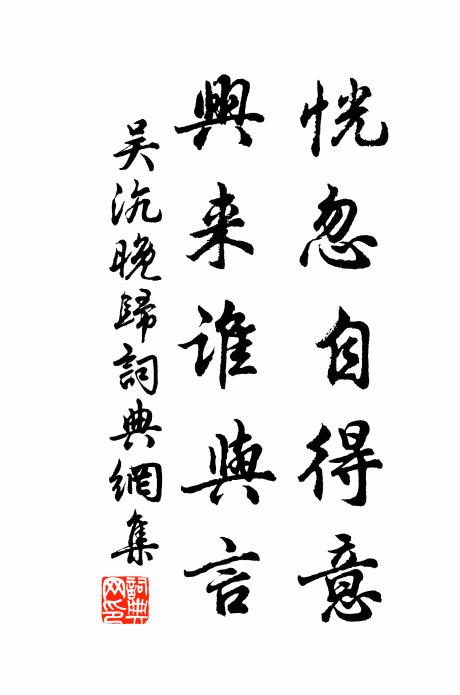 恍忽自得意
興来誰與言
吴沆晚歸詞典網集
詞典网印